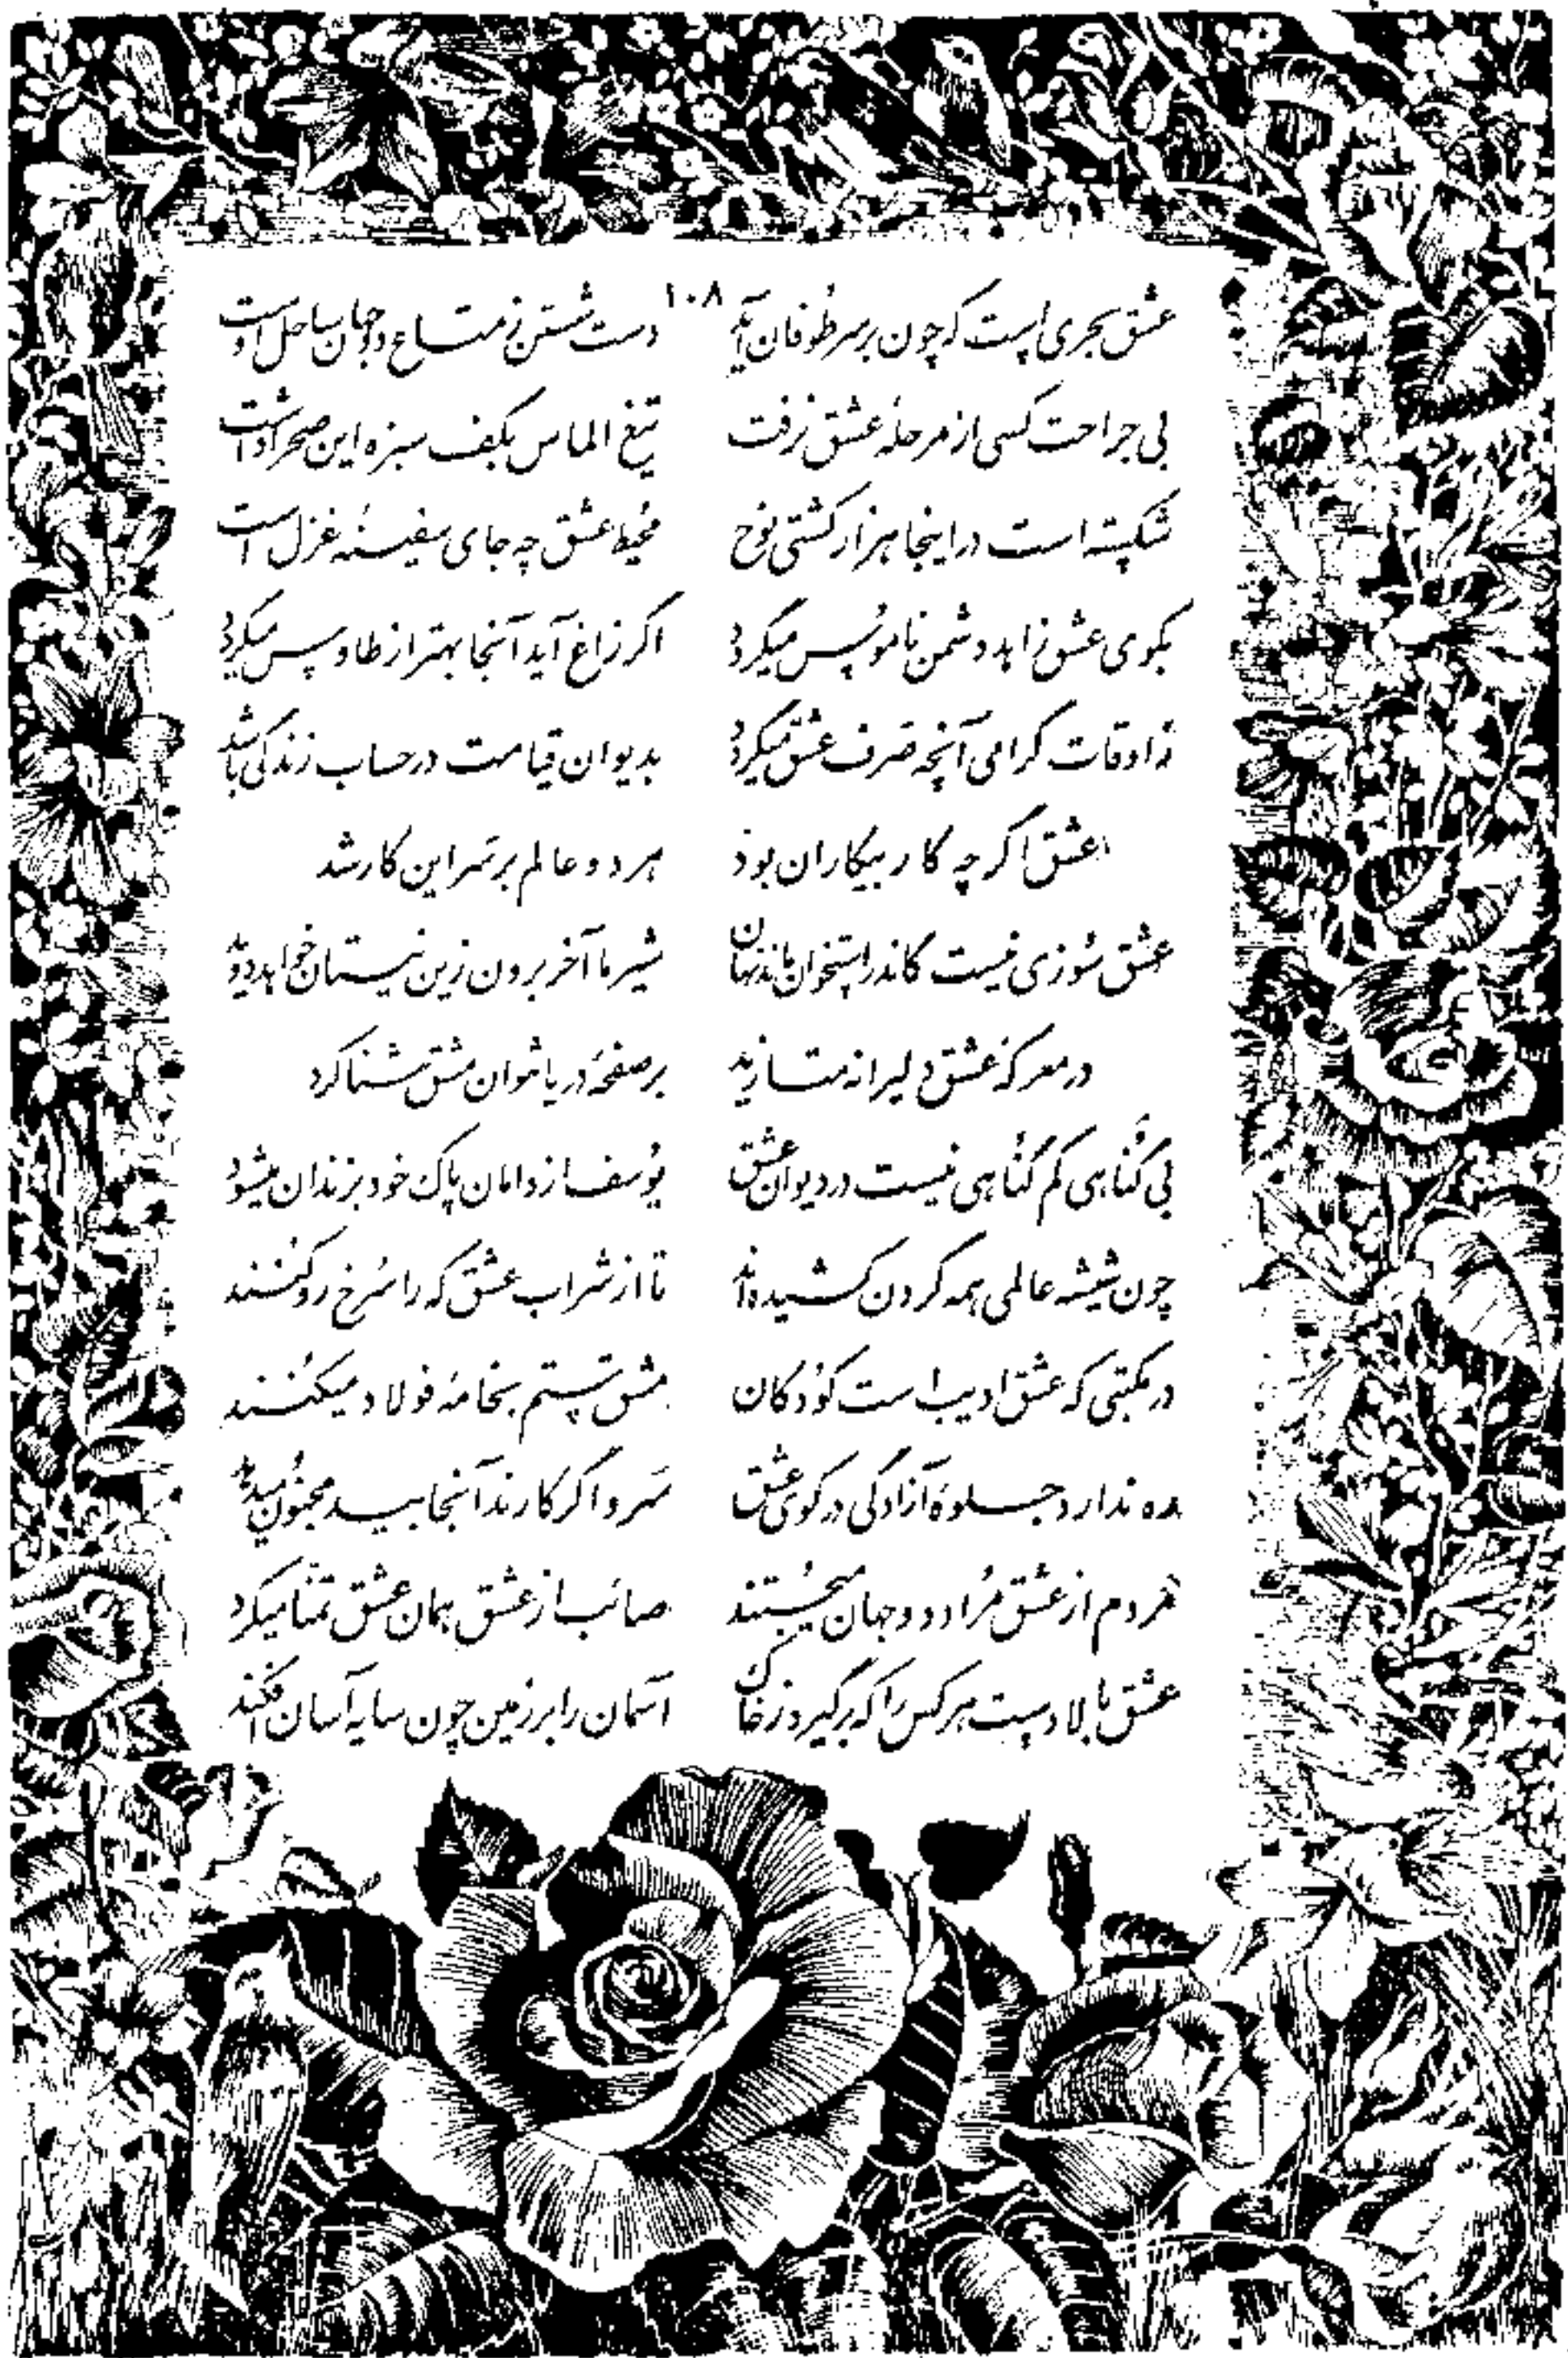 ۱۰۸
عشق بحری است که چون بر سر طوفان آید دست شستن ز متاع دو جهان ساحل اوست
بی جراحت کسی از مرحلهٔ عشق نرفت تیغ الماس بکف سبزه این صحرا داشت
شکسته است در اینجا هزار کشتی نوح محیط عشق چه جای سفینهٔ غزل است
بکوی عشق زاهد دشمن ناموس میگردد اگر زاغ آید آنجا بهتر از طاوس میگردد
ز اوقات گرامی آنچه صَرف عشق میگردد بدیوان قیامت در حساب زندگی باشد
عشق اگر چه کار بیکاران بود هر دو عالم بر سَر این کار شد
عشق سُوزی نیست کاندر استخوان ماند نهان شیر ما آخر برون زین نیستان خواهد دوید
در معرکهٔ عشق دلیرانه متازید بر صفحهٔ دریا نتوان مشق شنا کرد
بی گُناهی کم گُناهی نیست در دیوان عشق یُوسف از دامان پاک خود بزندان میشود
چون شیشه عالمی همه گردن کشیده‌اند تا از شراب عشق که را سُرخ رو کنند
در مکتبی که عشق ادیب است کوُدکان مشق ستم بخامهٔ فولاد میکُنند
ره ندارد جلوهٔ آزادگی در کوی عشق سَرو اگر کارند آنجا بید مجنُون میدمد
مَردم از عشق مُراد دو جهان میجُستند صائب از عشق همان عشق تمنّا میکرد
عشق بالا دست هر کس را که برگیرد ز خاک آسمان را بر زمین چون سایه آسان افکند